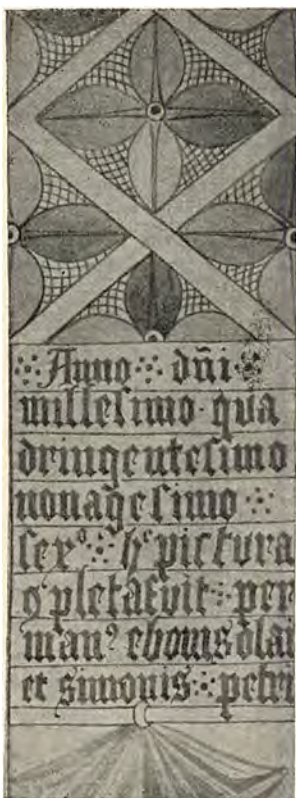 Anno dñi
millesimo qua
dringentesimo
nonagesimo
sexº hᶜ pictura
ꝯpleta fuit per
manꝰ ebonis olai
et simonis petri